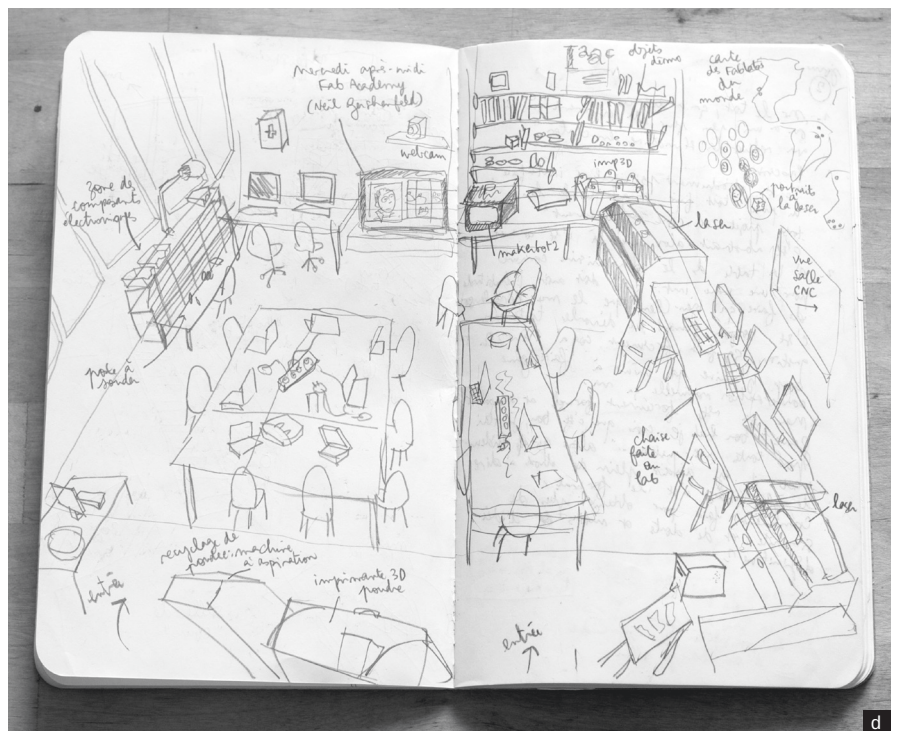 mercredi après-midi
Fab Academy
(Neil Gershenfeld)
webcam
zone de
composants
électroniques
poste à
souder
recyclage de
poudre: machine
à aspiration
imprimante 3D
poudre
entrée
Iaac
objets
démo
carte
des Fablabs
du
monde
imp3D
portraits
à
la laser
laser
makerbot2
vue
salle
CNC
→
chaise
faite
au
lab
laser
entrée
d